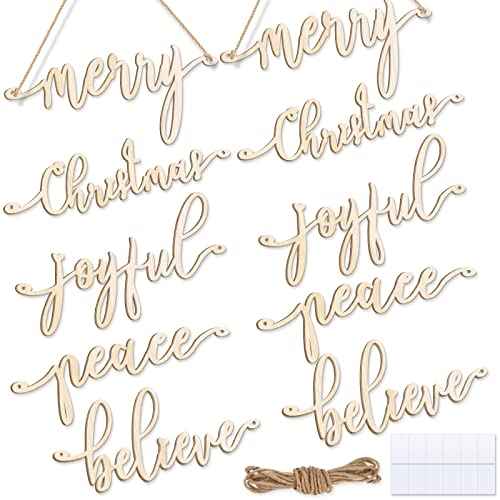 merry
Christmas
joyful
peace
believe
merry
Christmas
joyful
peace
believe